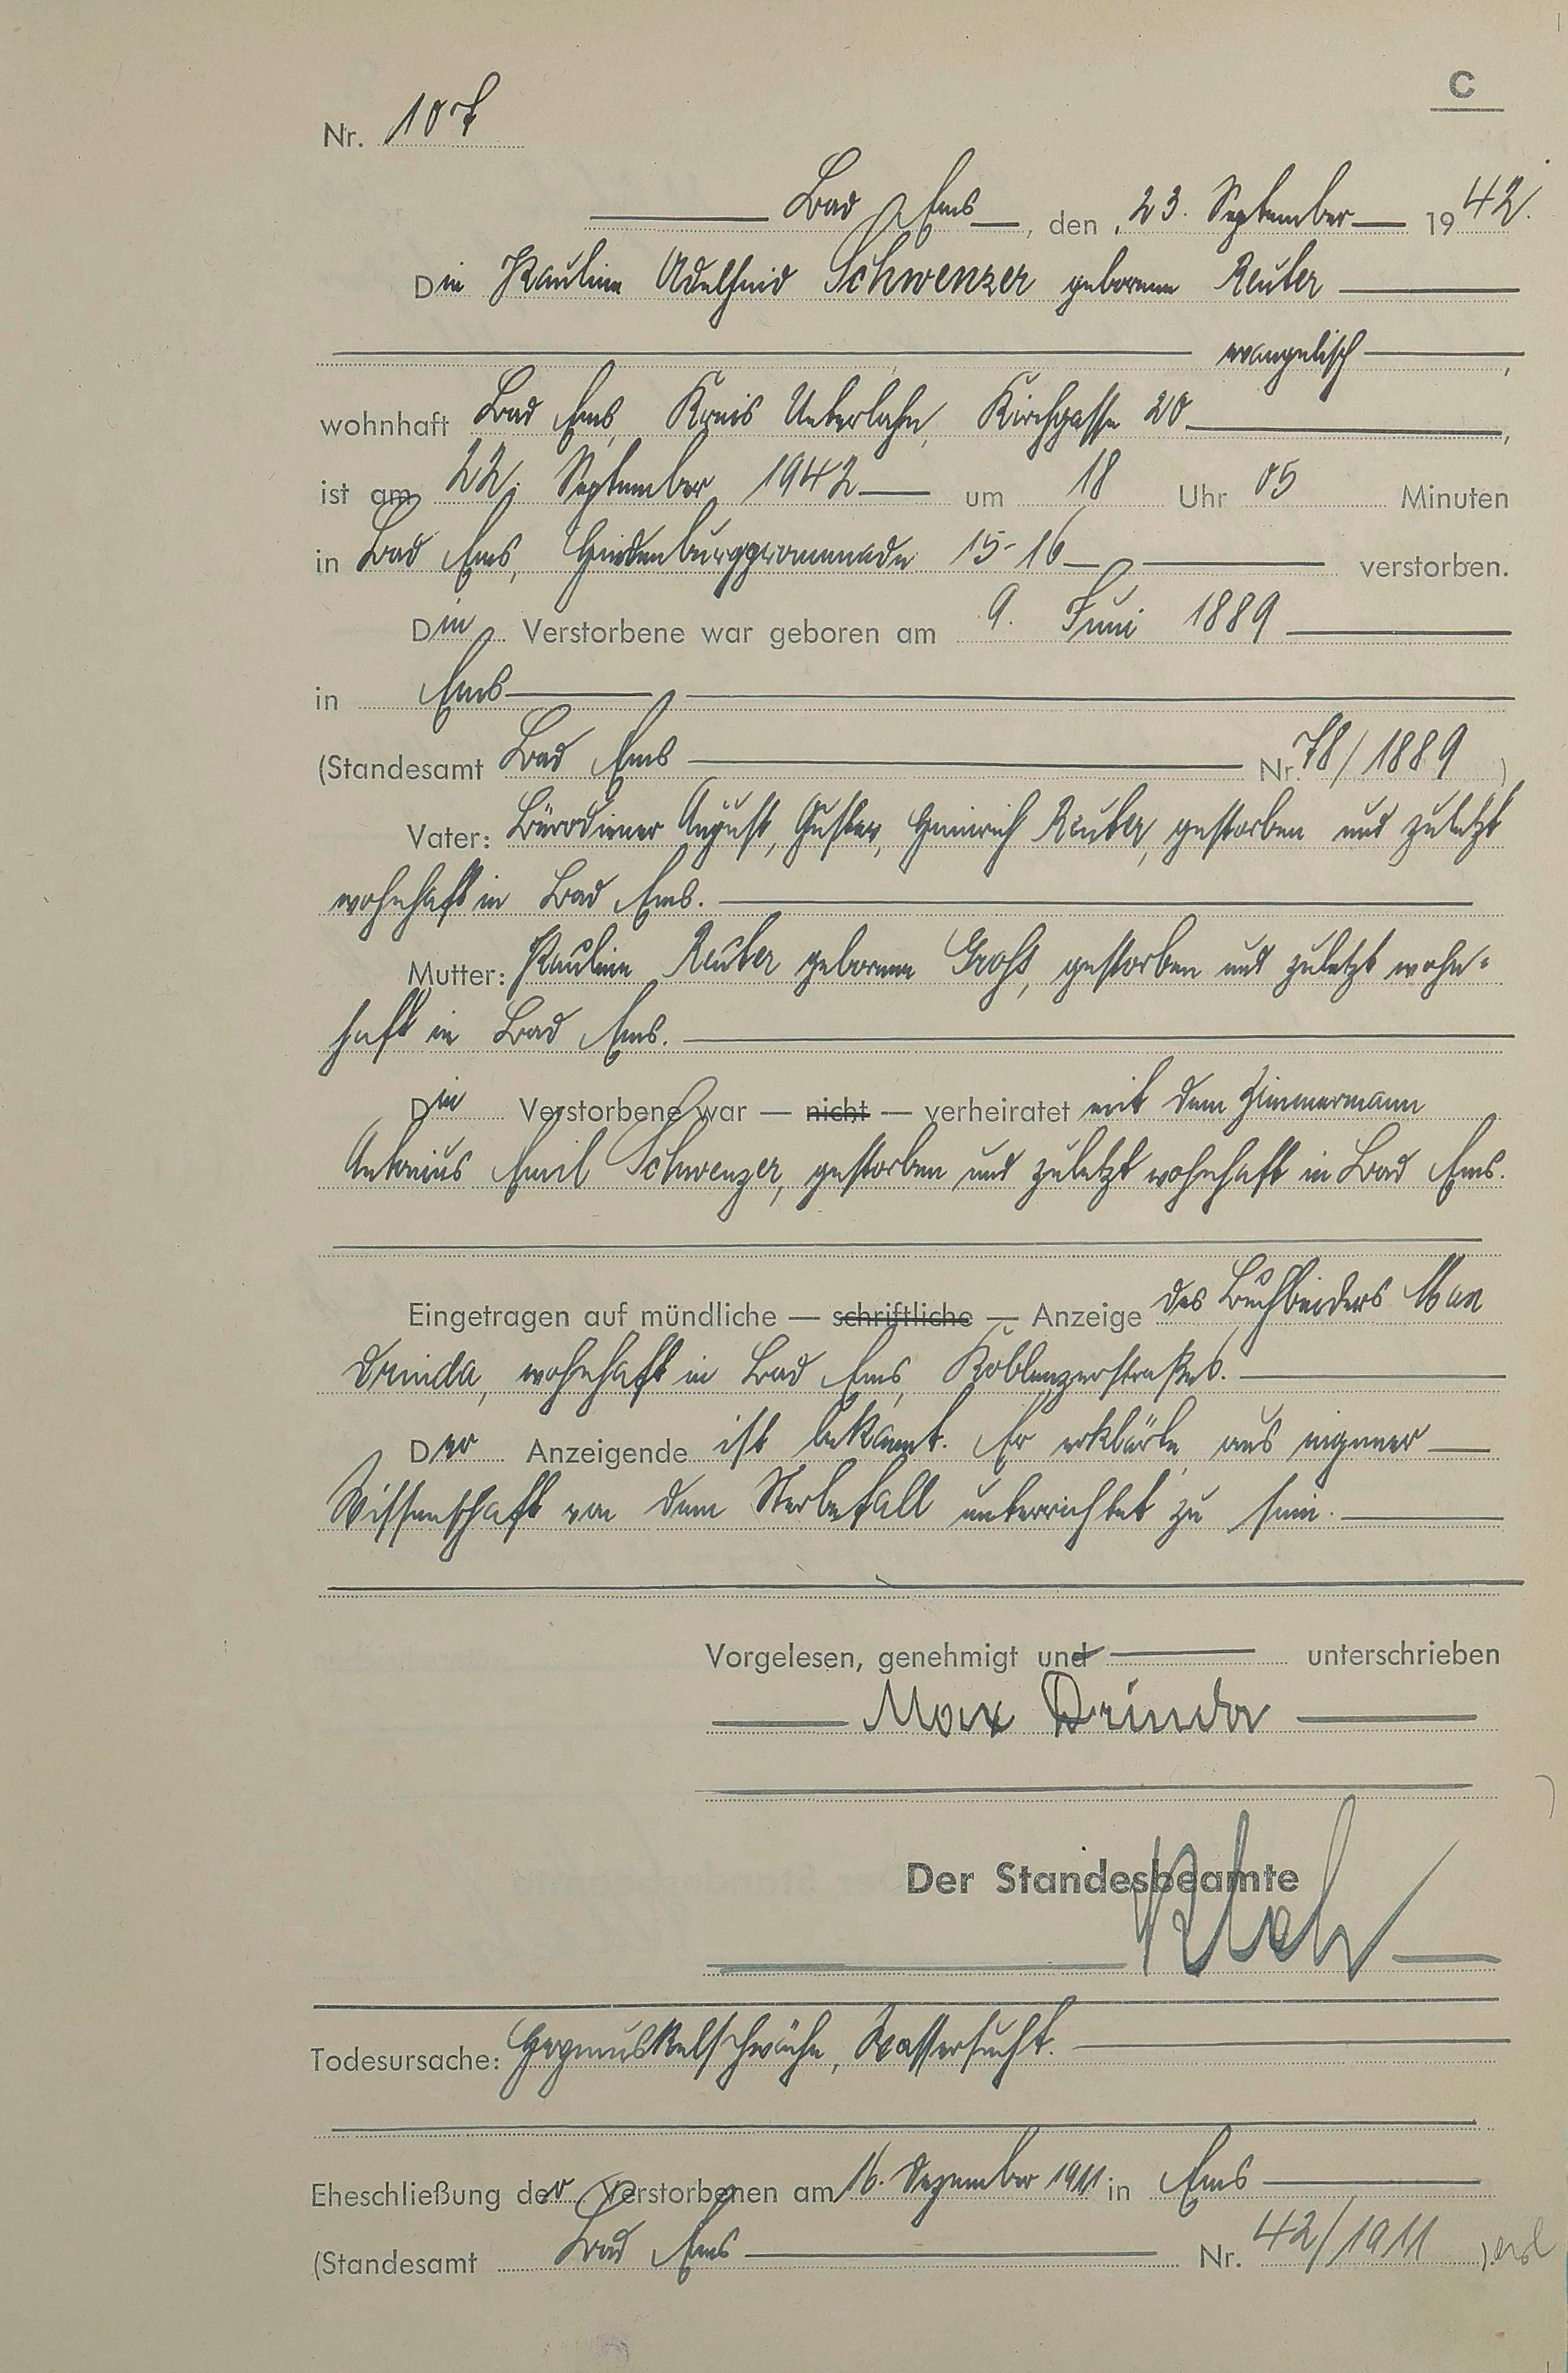 C
Nr. 107
Bad Ems, den 23. September 1942.
Die Pauline Adelheid Schwenzer geborene Reuter
evangelisch,
wohnhaft Bad Ems, Kreis Unterlahn, Kirchgasse 20,
ist am 22. September 1942 um 18 Uhr 05 Minuten
in Bad Ems, Hindenburgpromenade 15-16 verstorben.
Die Verstorbene war geboren am 9. Juni 1889
in Ems
(Standesamt Bad Ems Nr. 78/1889)
Vater: Bürodiener August, Gustav, Heinrich Reuter, gestorben und zuletzt
wohnhaft in Bad Ems.
Mutter: Pauline Reuter geborene Groß, gestorben und zuletzt wohn-
haft in Bad Ems.
Die Verstorbene war — nicht — verheiratet mit dem Zimmermann
Antonius Emil Schwenzer, gestorben und zuletzt wohnhaft in Bad Ems.
Eingetragen auf mündliche — schriftliche — Anzeige des Buchbinders Max
Drinda, wohnhaft in Bad Ems, Koblenzerstraße
Der Anzeigende ist bekannt. Er erklärte, aus eigener
Wissenschaft von dem Sterbefall unterrichtet zu sein.
Vorgelesen, genehmigt und unterschrieben
Max Drinda
Der Standesbeamte
Todesursache: Herzmuskelschwäche, Wassersucht.
Eheschließung der Verstorbenen am 16. Dezember 1911 in Ems
(Standesamt Bad Ems Nr. 42/1911).